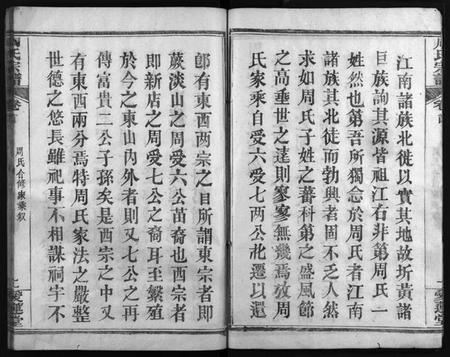 江南諸族北徙以實其地故圻黃諸
巨族詢其源皆祖江右非第周氏一
姓然也第吾所獨念於周氏者江南
諸族其北徙而勃興者固不乏人然
求如周氏子姓之蕃科第之盛風節
之高垂世之達則寥寥無幾焉攷周
氏家乘自受六受七两公北遷以還
郎有東西两宗之目所謂東宗者即
蕨淡山之周受六公苗裔也西宗者
即新店之周受七公之裔耳至繁殖
於今之東山內外者則又七公之再
傳富貴二公子孫矣是西宗之中又
有東西兩分焉特周氏家法之嚴整
世德之悠長雖祀事不相謀祠宇不
周氏宗譜
卷首
周氏合修家乘叙
愛蓮堂